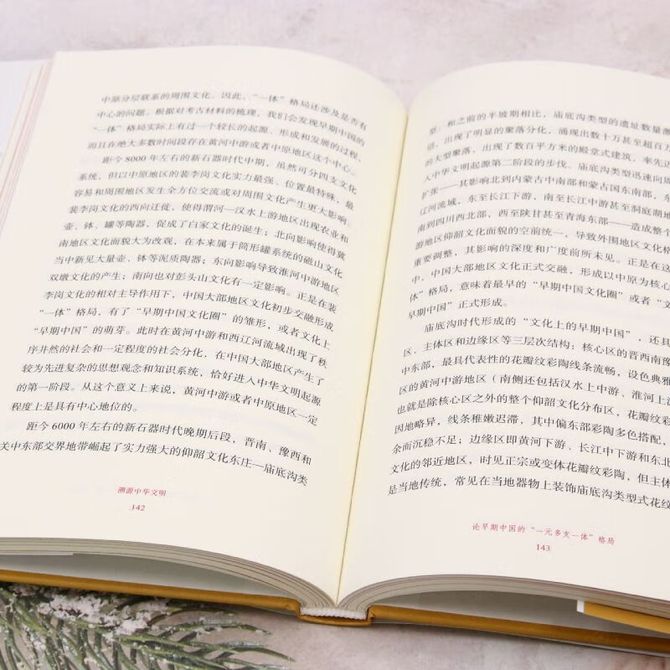 中原分层联系的周围文化。因此，“一体”格局还涉及是否有
中心的问题。根据对考古材料的梳理，我们会发现早期中国的
“一体”格局实际上有过一个较长的起源、形成和发展的过程，
而且在绝大多数时间段存在黄河中游或者中原地区这个中心。
距今 8000 年左右的新石器时代中期，虽然可分四支文化
系统，但以中原地区的裴李岗文化实力最强、位置最特殊，最
容易和周围地区发生全方位交流或对周围文化产生更大影响。
裴李岗文化的西向迁徙，使得渭河—汉水上游地区出现农业和
壶、钵、罐等陶器，促成了白家文化的诞生；北向影响使得冀
南地区文化面貌大为改观，在本来属于筒形罐系统的磁山文化
当中新见大量壶、钵等泥质陶器；东向影响导致淮河中游地区
双墩文化的产生；南向也对彭头山文化有一定影响。正是在裴
李岗文化的相对主导作用下，中国大部地区文化初步交融形成
“一体”格局，有了“早期中国文化圈”的雏形，或者文化上
“早期中国”的萌芽。此时在黄河中游和西辽河流域出现了秩
序井然的社会和一定程度的社会分化，在中国大部地区产生了
较为先进复杂的思想观念和知识系统，恰好进入中华文明起源
的第一阶段。从这个意义上来说，黄河中游或者中原地区一定
程度上是具有中心地位的。
距今 6000 年左右的新石器时代晚期后段，晋南、豫西和
关中东部交界地带崛起了实力强大的仰韶文化东庄—庙底沟类
溯源中华文明
142
型；和之前的半坡期相比，庙底沟类型的遗址数量
倍，出现了明显的聚落分化，涌现出数十万甚至超百万
的大型聚落，出现了数百平方米的殿堂式建筑，率先迈
入中华文明起源第二阶段的步伐。庙底沟类型迅速向周
扩张——其影响北到内蒙古中南部和蒙古国东南部，东
江河流域，东至长江下游，南至长江中游甚至洞庭湖地
南到四川西北部，西至陕甘甚至青海东部——造成整个
游地区仰韶文化面貌的空前统一，导致外围地区文化格
重要调整，其影响的深度和广度前所未见。正是在这
中，中国大部地区文化正式交融，形成以中原为核心
体”格局，意味着最早的“早期中国文化圈”或者“文
期中国”正式形成。
庙底沟时代形成的“文化上的早期中国”，还具
区、主体区和边缘区等三层次结构：核心区的晋西南豫
中东部，最具代表性的花瓣纹彩陶线条流畅，设色典雅
区的黄河中游地区（南侧还包括汉水上中游、淮河上
也就是除核心区之外的整个仰韶文化分布区，花瓣纹
因地略异，线条稚嫩迟滞，其中偏东部彩陶多色搭配，
余而沉稳不足；边缘区即黄河下游、长江中下游和东北
文化的邻近地区，时见正宗或变体花瓣纹彩陶，但主体
是当地传统，常见在当地器物上装饰庙底沟类型式花纹
论早期中国的“一元多支一体”格局
143